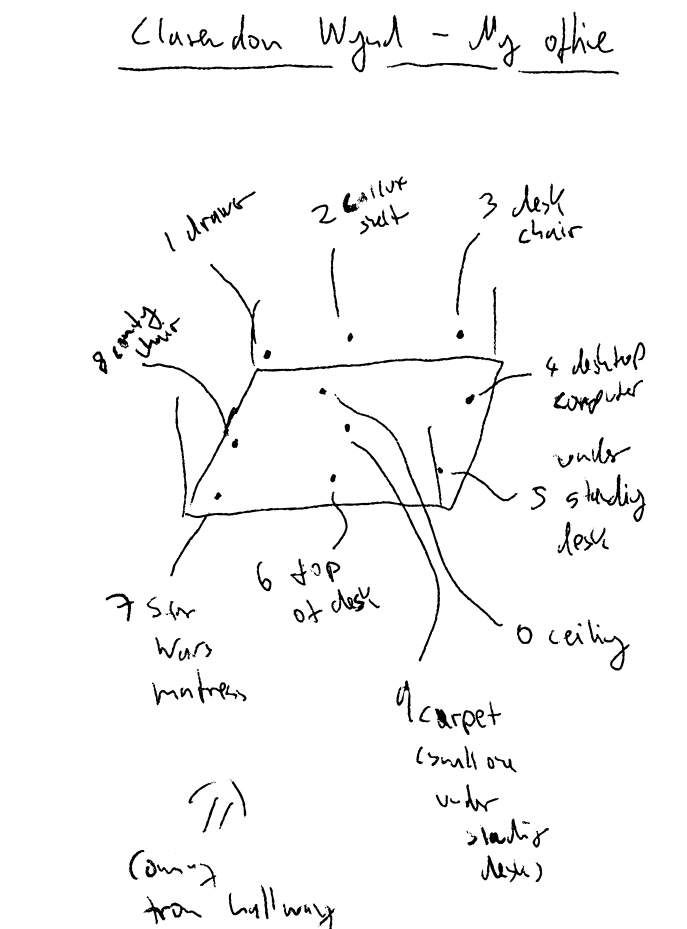 Clarendon Wynd - My office
1 drawer
2 Callux
shelf
3 desk
chair
8 comfy
chair
4 desktop
computer
5 under
standing
desk
6 top
of desk
7 Star
Wars
matress
0 ceiling
9 carpet
(small one
under
standing
desk)
Coming
from hallway